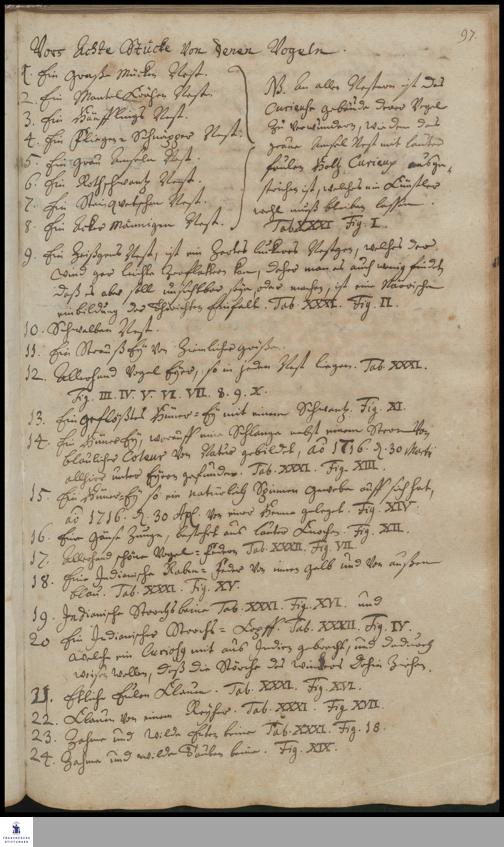 97.
Vors Achte Stücke von denen Vogeln.
1. Ein Graße Mücken Nest.
2. Ein Mantel Krähen Nest.
3. Ein Hänfflings Nest.
4. Ein Fliegen-Schnäpper Nest.
5. Ein grau Amseln Nest.
6. Ein Rothschwantz Nest.
7. Ein Steinqvetschen Nest.
8. Ein Acker Männigen Nest.
NB. An allen Nestern ist das
Curieuse gebäude derer Vogel
zu verwundern, wie denn das
graue Amsel Nest mit lauter
faulen Holtz Curieux ausge-
strichen ist, welches ein Künstler
wohl muß bleiben lassen.
Tab. XXXI Fig. I.
9. Ein Zeißgens Nest, ist ein Zartes Nestgen, welches der
wind gar leichte kan, daher man es auch wenig findet,
daß es aber soll unsichtbar seyn oder machen, ist eine Närrische
einbildung der Thörichten Einfalt. Tab. XXXI. Fig. II.
10. Schwalben Nest.
11. Ein Strauß Ey von Ziemlicher größe.
12. Allerhand Vogel Eyer, so in jedem Nest liegen. Tab. XXXI.
Fig. III. IV. V. VI. VII. 8. 9. X.
13. Ein Hüner-Ey mit einem Schwantz. Fig. XI.
14. Ein Hüner Ey, worauff eine Schlange nebst einem Stern von
bläulicher Coleur von Natur gebildet, aõ 1716. d. 30 Martÿ
allhier unter Eyern gefunden. Tab. XXXI. Fig. XIII.
15. Ein Hüner-Ey so ein natürlich Spinnen Gewebe auff sich hat,
aõ 1716. d. 30 Apl. von einer Henne geleget. Fig. XIV.
16. Eine Gänse Zunge, bestehet aus lauter Knochen. Fig. XII.
17. Allerhand schöne Vogel-Federn Tab. XXXII. Fig. VII.
18. Eine Indianische Raben-Feder von innen gelb und von außen
blau. Tab. XXXI. Fig. XV.
19. Indianische Storchsbeine Tab. XXXI. Fig. XVI. und
20 Ein Indianischer Storchs-Kopff. Tab. XXXII. Fig. IV.
welche ein Curiosg mit aus Indien gebracht, und dadurch
weisen wollen, daß die Störche des winters dahin ziehen.
21. Etliche Eulen Klauen. Tab. XXXI. Fig. XVI.
22. Klauen von einem Reyher. Tab. XXXI. Fig. XVII.
23. Zahme und wilde Enten beine Tab. XXXI. Fig. 18.
24. Zahme und wilde Tauben beine. Fig. XIX.
FRANCKESCHE
STIFTUNGEN